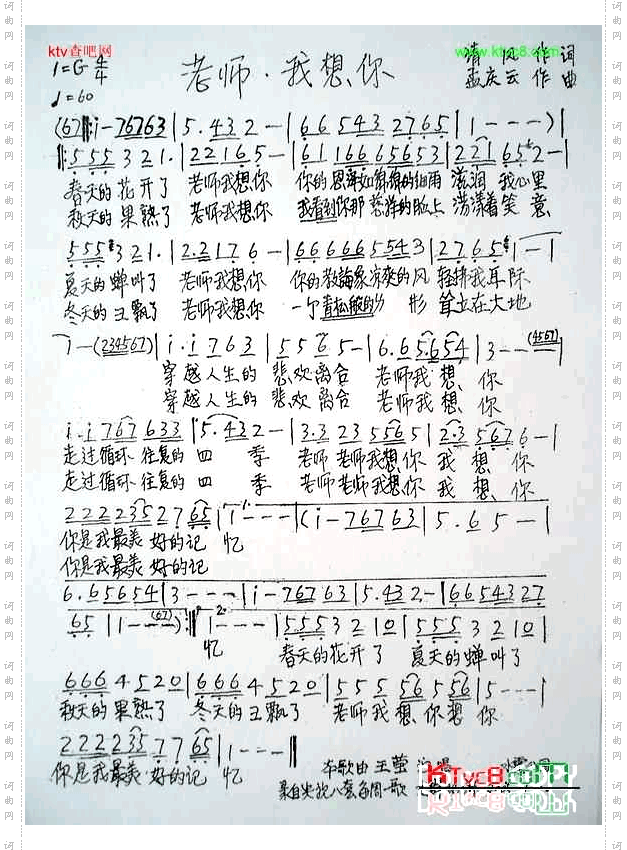 ktv查吧网
www.ktvc8.com
1=G 4/4
♩=60
老师·我想你
清风 作 词
孟庆云 作 曲
(67)‖:i-76763|5.432-|6654327 65|1---)|
‖:555321.|22165-|61166656 53|22165 2-|
春天的花开了 老师我想你 你的恩泽如绵绵的细雨 滋润 我心里
秋天的果熟了 老师我想你 我看到你那慈祥的脸上 荡漾着笑 意
555321.|2.2176-|666665543|2765 1-|
夏天的蝉叫了 老师我想你 你的教诲象凉爽的风 轻拂我耳际
冬天的 飘了 老师我想你 一个青松般的 形 耸立在大地
1--(234567)|i.i763|5565-|6.65654|3--(4567)|
穿越人生的 悲欢离合 老师我想、你
穿越人生的 悲欢离合 老师我想、你
i.i767633|5.432-|3.3235565|2.35676-|
走过循环往复的四 季 老师老师我想你我 想、你
走过循环往复的四 季 老师老师我想你我 想、你
2222235 2765|1---|(i-76763|5.65-|
你是我最美好的记 忆
你是我最美好的记
6.65654|3---|i-76763|5.432-|6654327
65|1--(67):‖1---|5553210|5553210|
忆 春天的花开了 夏天的蝉叫了
6664520|6664520|555565 6|5---|
秋天的果熟了 冬天的 飘了 老师我想你想你
2222235 7765|1---‖
你是我最美好的记 忆
本歌由王莹 演唱
KTvc8.COM